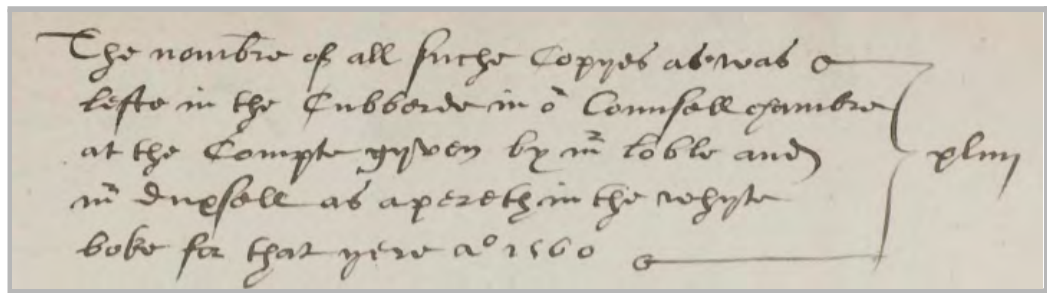 The nombre of all suche Copyes as was
lefte in the Cubberde in oʳ Counsell chambre
at the Compte gyven by mʳ loble and xliiij
mʳ Duxsell as apereth in the whyte
boke for that yere aº 1560